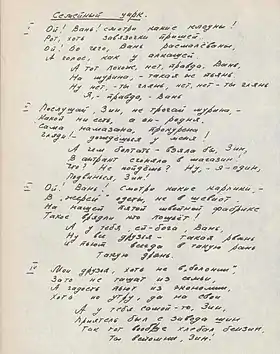 Семейный цирк.
I Ой! Вань! смотри какие клоуны!
Рот, хоть завязочки пришей.
Ой! До чего, Вань размалёваны,
А голос, как у алкашей.
А тот похож, нет, правда, Вань,
На шурина, - такая ж пьянь.
Ну нет, - ты глянь, нет, нет - ты глянь
Я, - правда, - Вань
II Послушай, Зин, не трогай шурина -
Какой ни есть, а он - родня.
Сама намазана, прокурена
Гляди! - дождёшься у меня!
А чем болтать - взяла бы, Зин,
В антракт сгоняла в магазин!
Что? Не пойдёшь? Ну, - я - один,
Подвинься, Зин!
III Ой! Вань! Смотри какие карлики, -
В джерси одеты, не в шевиот. -
На нашей пятой швейной фабрике
Такие вряд ли кто пошьёт!
А у тебя, ей-богу, Вань,
Ну все друзья - такая рвань
И пьют всегда в такую рань
Такую дрянь.
IV Мои друзья, хоть не в болоньи,
Зато не тащат из семьи
А гадость пьют из экономии,
Хоть по утру, да на свои
А у тебя самой-то, Зин,
Приятель был с завода шин
Так тот вообще хлебал бензин,
Ты вспомни, Зин!